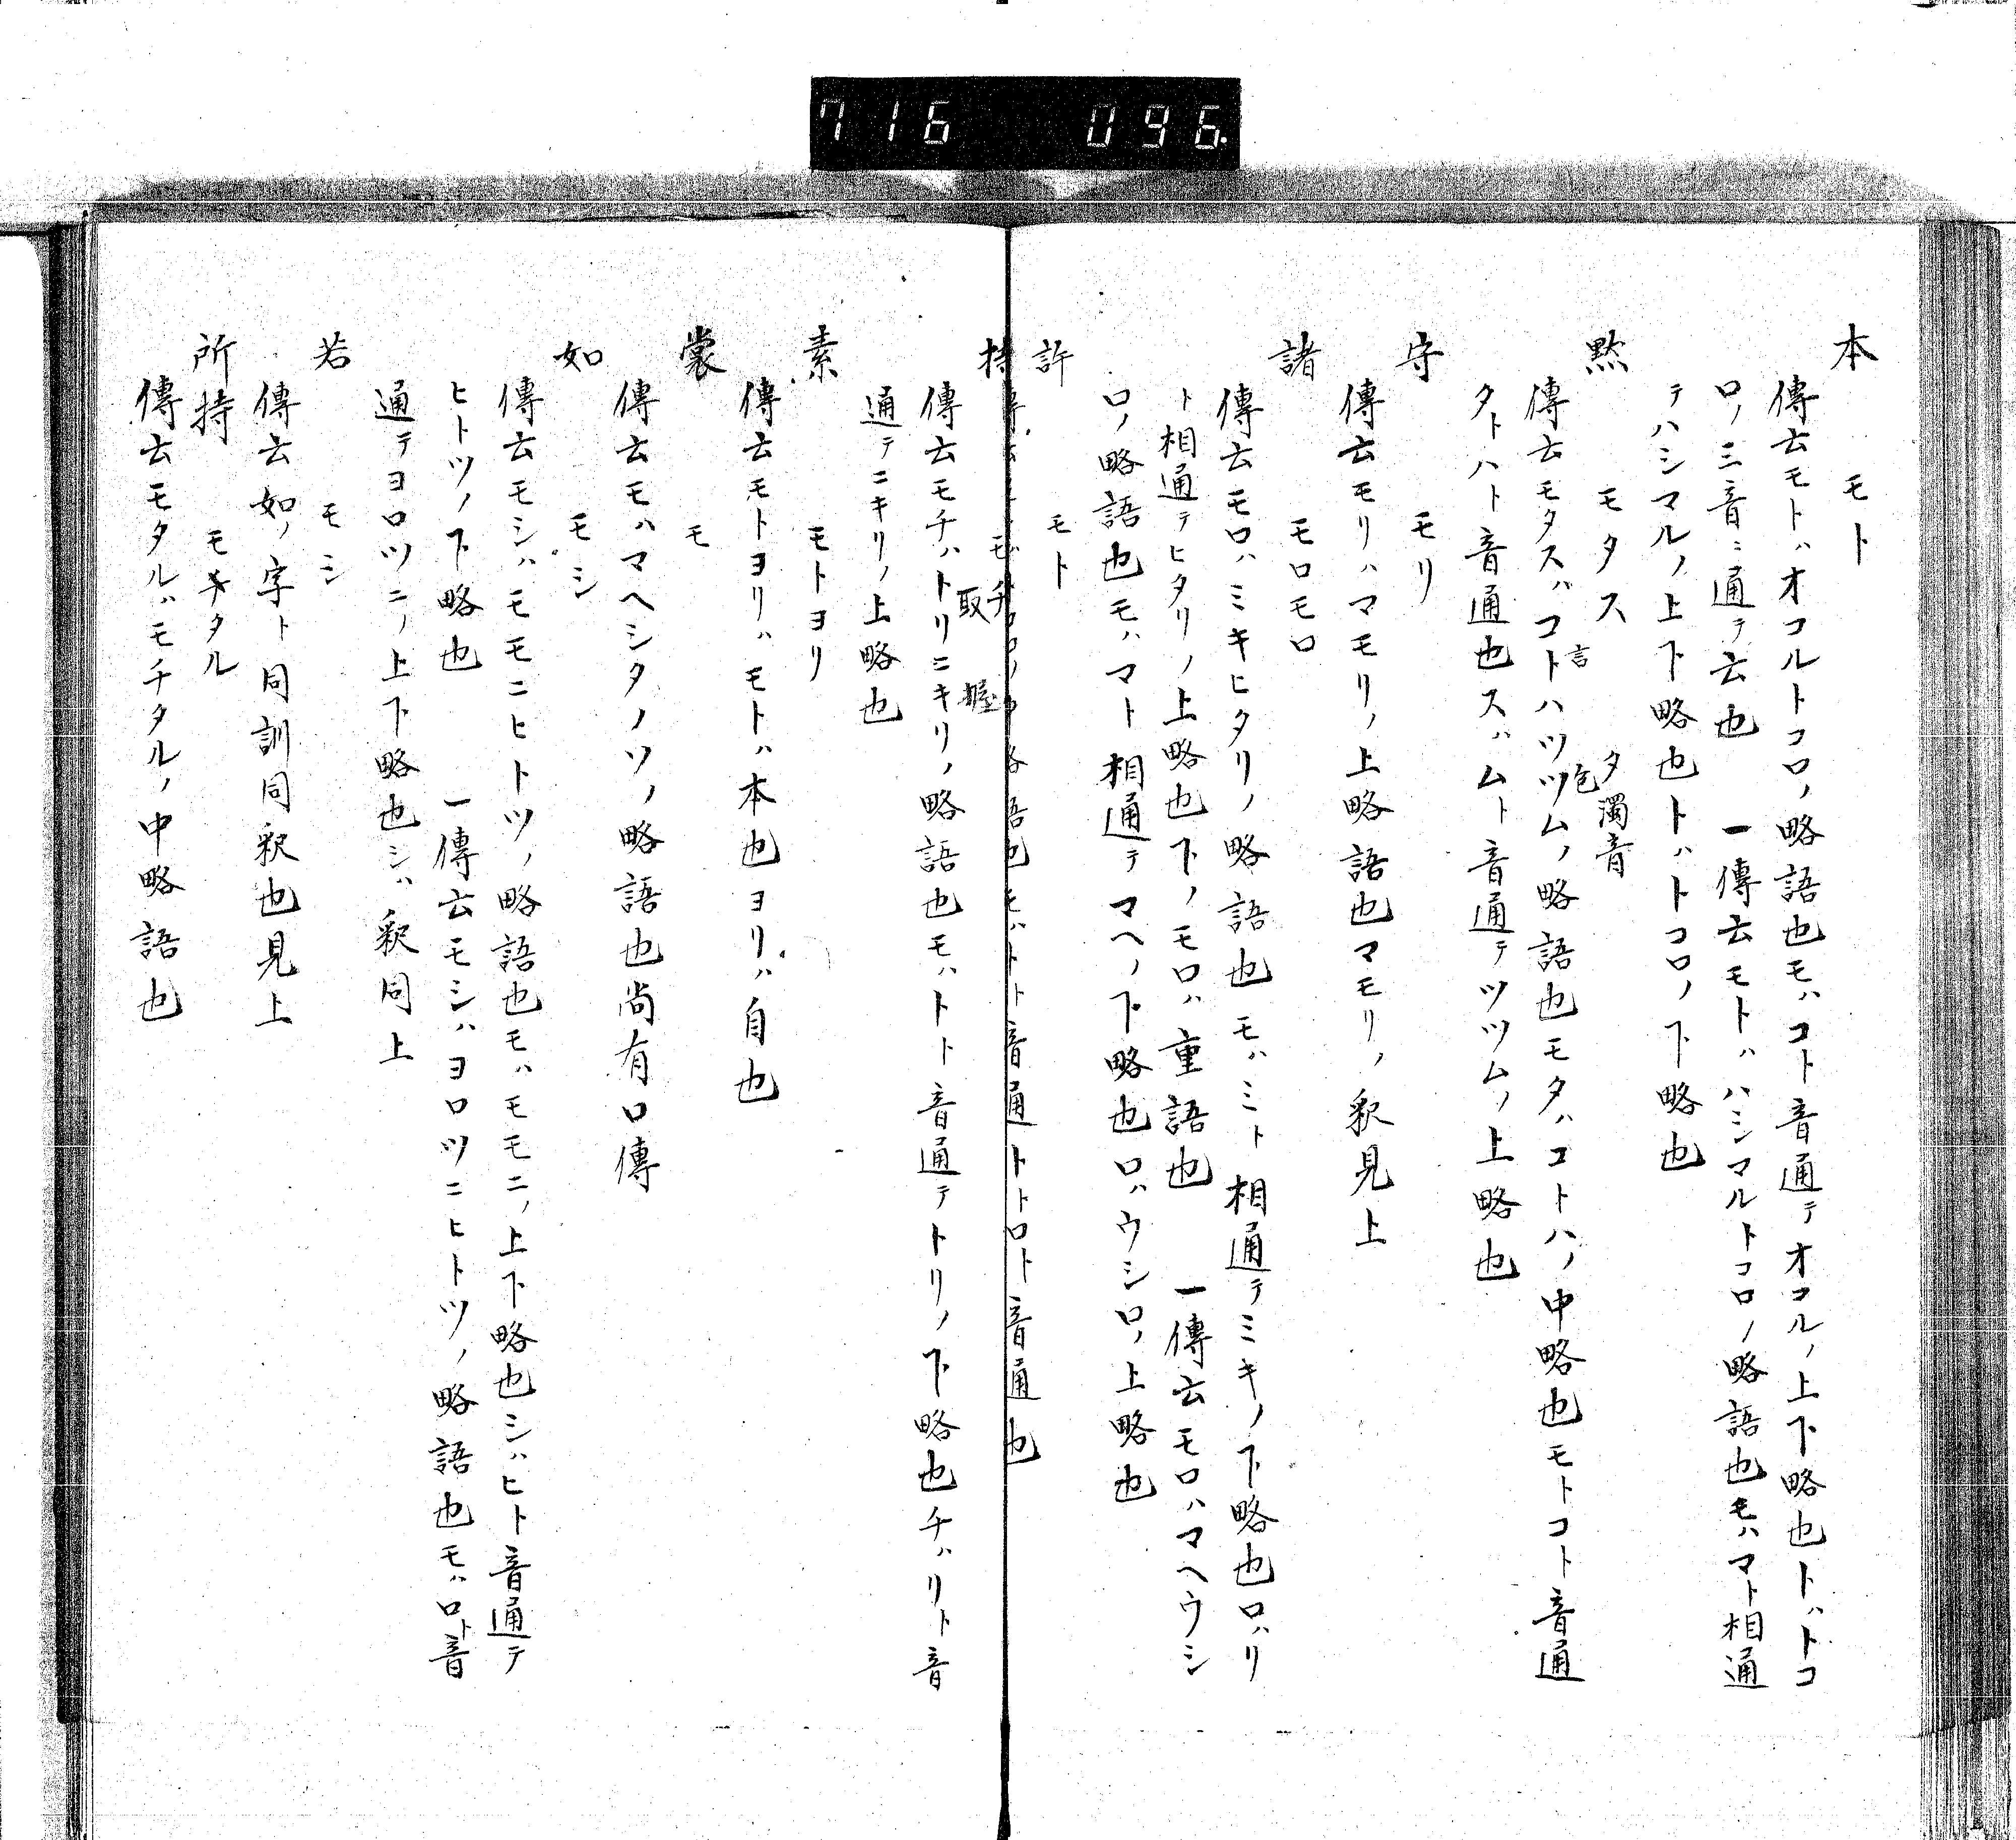 716 096
本 モト
傳云モトハオコルトコロノ略語也モハコト音通テオコルノ上下略也トハトコ
ロノ三音ニ通テ云也 一傳云モトハハシマルトコロノ略語也モハマト相通
テハシマルノ上下略也トハトコロノ下略也
黙 モタス タ濁音
傳云モタスハコトハツツムノ略語也モタハコトハノ中略也モトコト音通
言 包
タトハト音通也スハムト音通テツツムノ上略也
守 モリ
傳云モリハマモリノ上略語也マモリノ釈見上
諸 モロモロ
傳云モロハミキヒタリノ略語也モハミト相通テミキノ下略也ロハリ
ト相通テヒタリノ上略也下ノモロハ重語也 一傳云モロハマヘウシ
ロノ略語也モハマト相通テマヘノ下略也ロハウシロノ上略也
許 モト
略語也モハトト音通トトロト音通也
持 モチ
取 握
傳云モチハトリニキリノ略語也モハトト音通テトリノ下略也チハリト音
通テニキリノ上略也
素 モトヨリ
傳云モトヨリハモトハ本也ヨリハ自也
裳 モ
傳云モハマヘシタノソノ略語也尚有口傳
如 モシ
傳云モシハモモニヒトツノ略語也モハモモニノ上下略也シハヒト音通テ
ヒトツノ下略也 一傳云モシハヨロツニヒトツノ略語也モハロト音
通テヨロツニノ上下略也シハ釈同上
若 モシ
傳云如ノ字ト同訓同釈也見上
所持 モタル
傳云モタルハモチタルノ中略語也